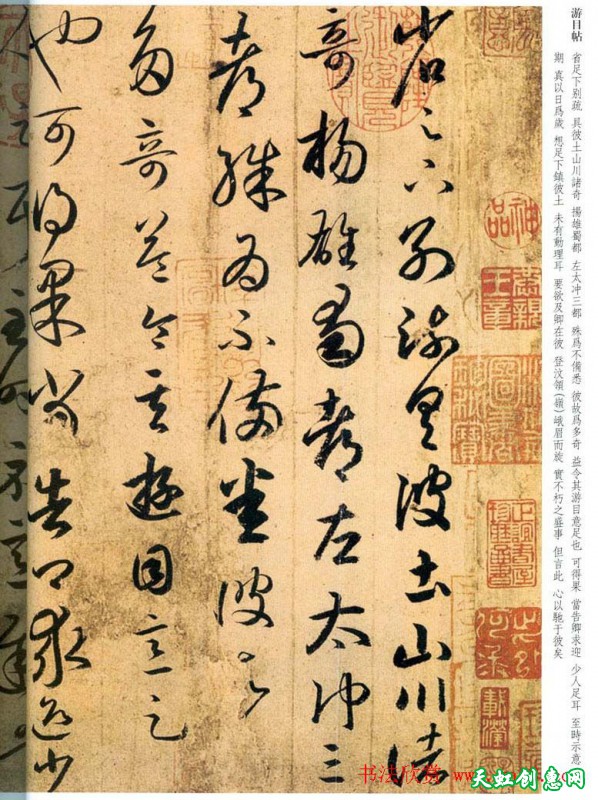 游目帖
省足下別疏 具彼土山川諸奇 揚雄蜀都 左太冲三都 殊爲不備悉 彼故爲多奇 益令其游目意足也 可得果 當告卿求迎 少人足耳 至時示意
期 真以日爲歲 想足下鎮彼土 未有動理耳 要欲及卿在彼 登汶領(嶺)峨眉而旋 實不朽之盛事 但言此 心以馳于彼矣
省足下別疏具彼土山川諸
奇楊雄蜀都左太冲三
都殊爲不備悉彼故爲
多奇益令其遊目意足
也可得果當告卿求迎少
人足耳至時示意
书法欣赏
天虹创惠网